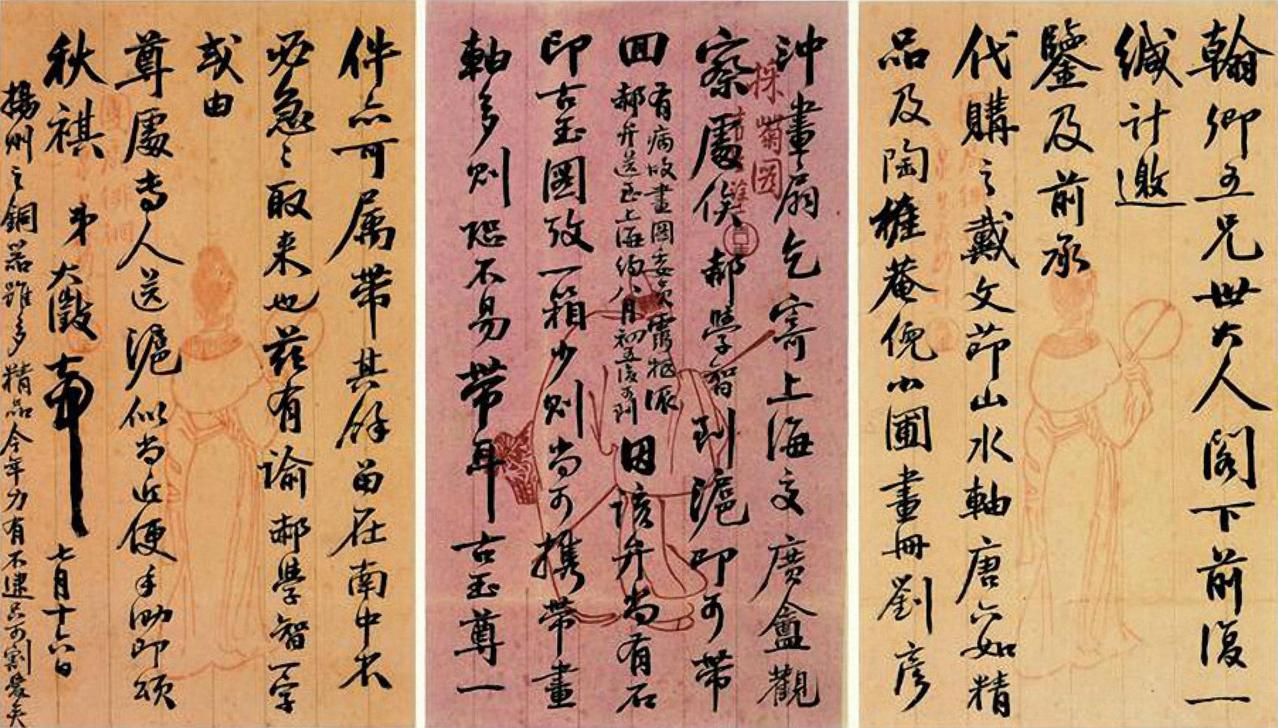 翰卿五兄世大人閣下前復一
緘計邀
鑒及前承
代購之戴文節山水軸唐六如精
品及陶樵菴倪小圃畫冊劉彥
沖畫扇乞寄上海交廣盦觀
察處俟郝學智到滬即可帶
回
有病收畫圖委員
郝弁送至上海約八月初五後可到
因該弁尚有石
印古玉圖攷一箱少則尚可攜帶畫
軸多則恐不易帶耳古玉尊一
件亦可屬帶其餘留在南中不
必急〻取來也茲有諭郝學智一字
或由
尊處專人送滬似尚近便手泐即頌
秋祺 弟大澂頓首 七月十六日
揚州之銅器雖多精品今年力有不逮只可割愛矣
採菊圖